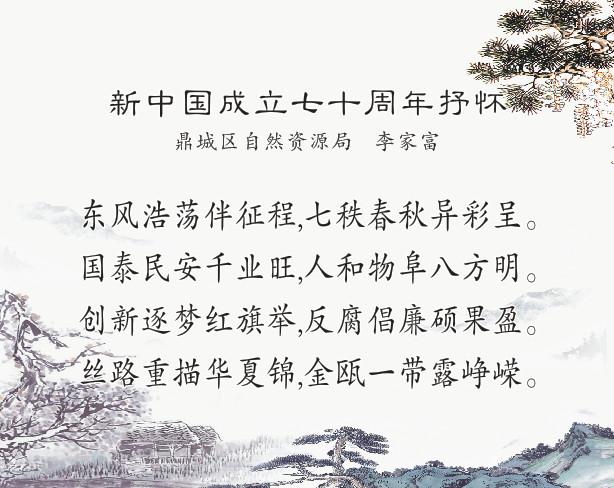 新中国成立七十周年抒怀
鼎城区自然资源局 李家富
东风浩荡伴征程,七秩春秋异彩呈。
国泰民安千业旺,人和物阜八方明。
创新逐梦红旗举,反腐倡廉硕果盈。
丝路重描华夏锦,金瓯一带露峥嵘。